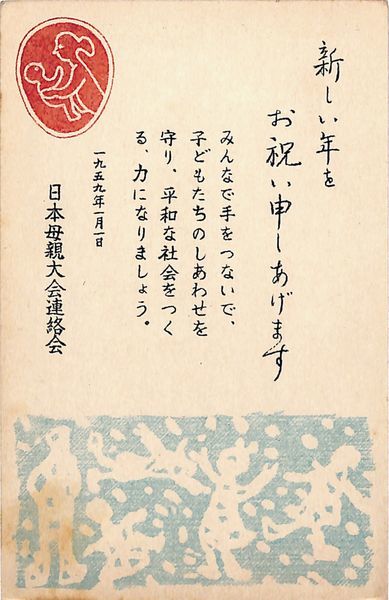 新しい年を
お祝い申しあげます
みんなで手をつないで、
子どもたちのしあわせを
守り、平和な社会をつく
る、力になりましょう。
一九五九年一月一日
日本母親大会連絡会